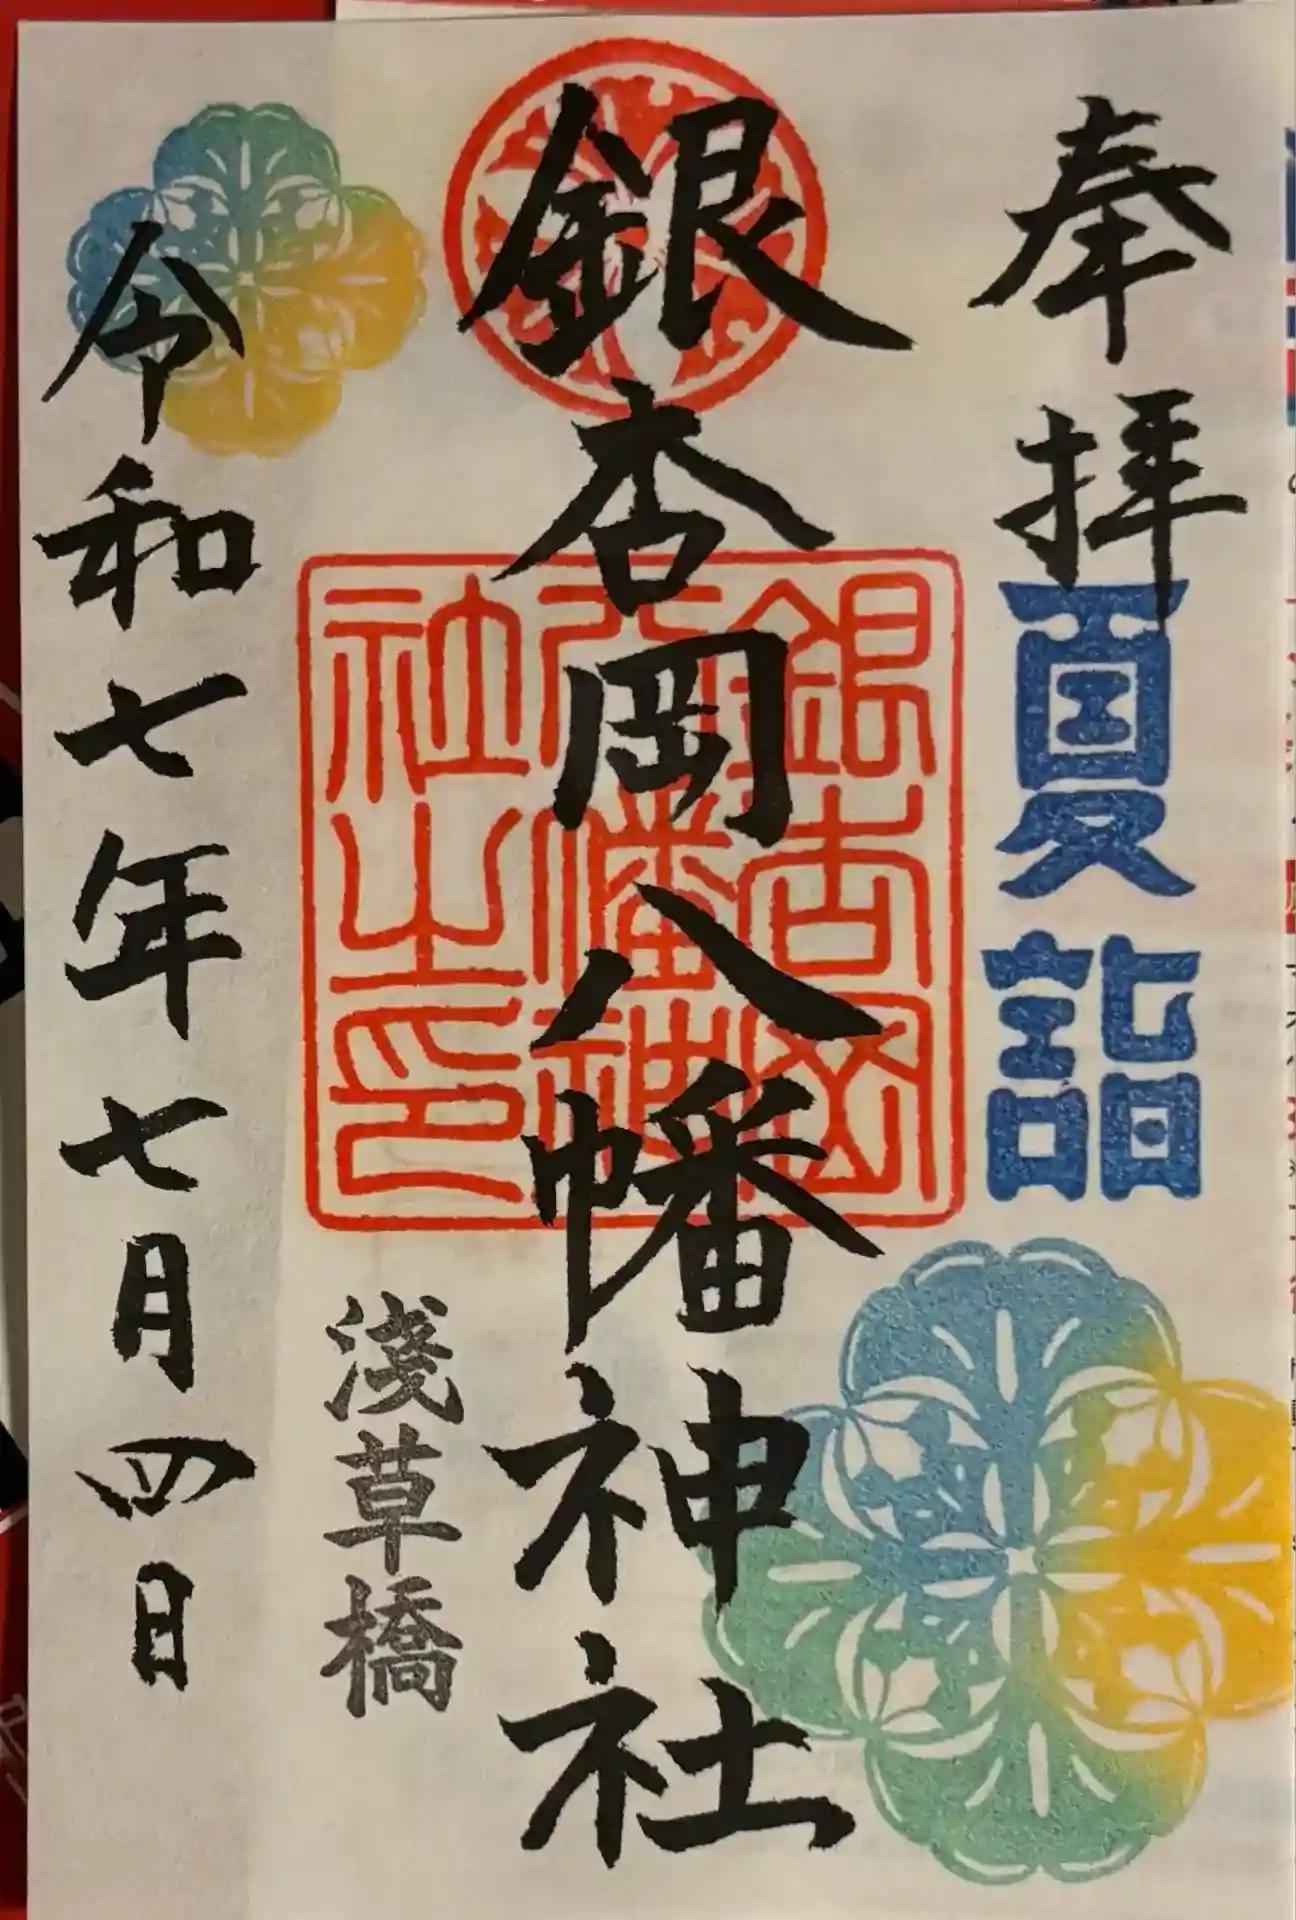 奉拝
夏詣
銀杏岡八幡神社
銀杏岡
八幡神
社之印
淺草橋
令和七年七月四日